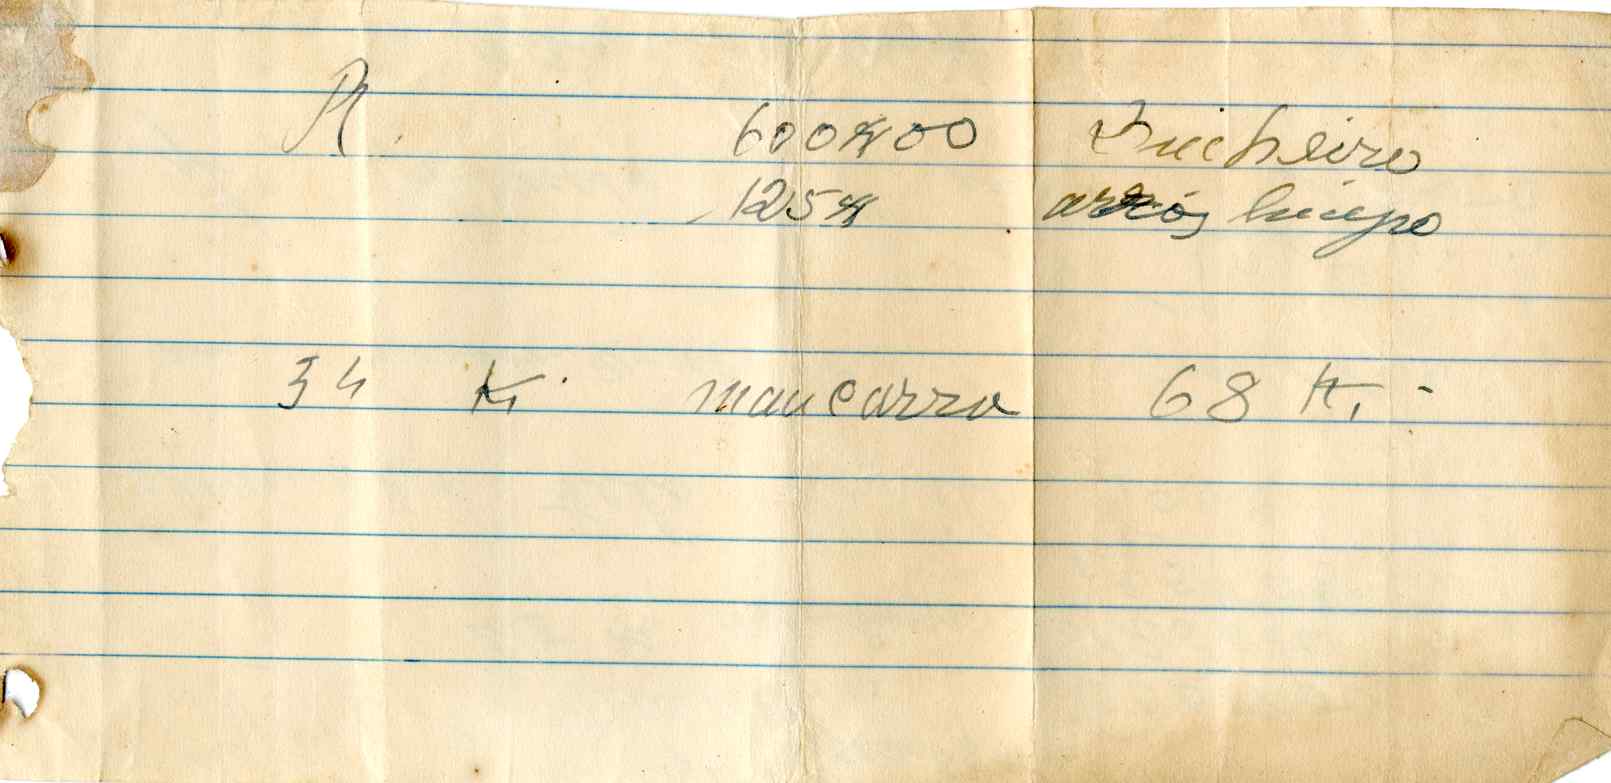 R. 600$00 Dinheiro
125$ arrós limpo
34 K. mancarra 68 K. -